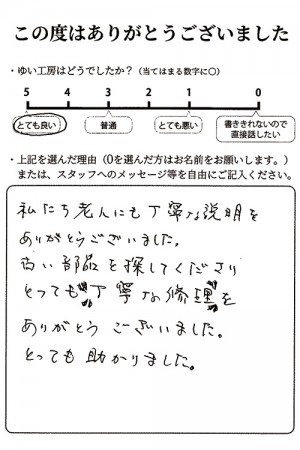 この度はありがとうございました
・ゆい工房はどうでしたか？（当てはまる数字に〇）
5 4 3 2 1 0
とても良い 普通 とても悪い 書ききれないので
直接話したい
・上記を選んだ理由（0を選んだ方はお名前をお願いします。）
または、スタッフへのメッセージ等を自由にご記入ください。
私たち老人にも丁寧な説明を
ありがとうございました。
古い部品を探してくださり
とっても〝丁寧な修理〟を
ありがとう ございました。
とっても 助かりました。